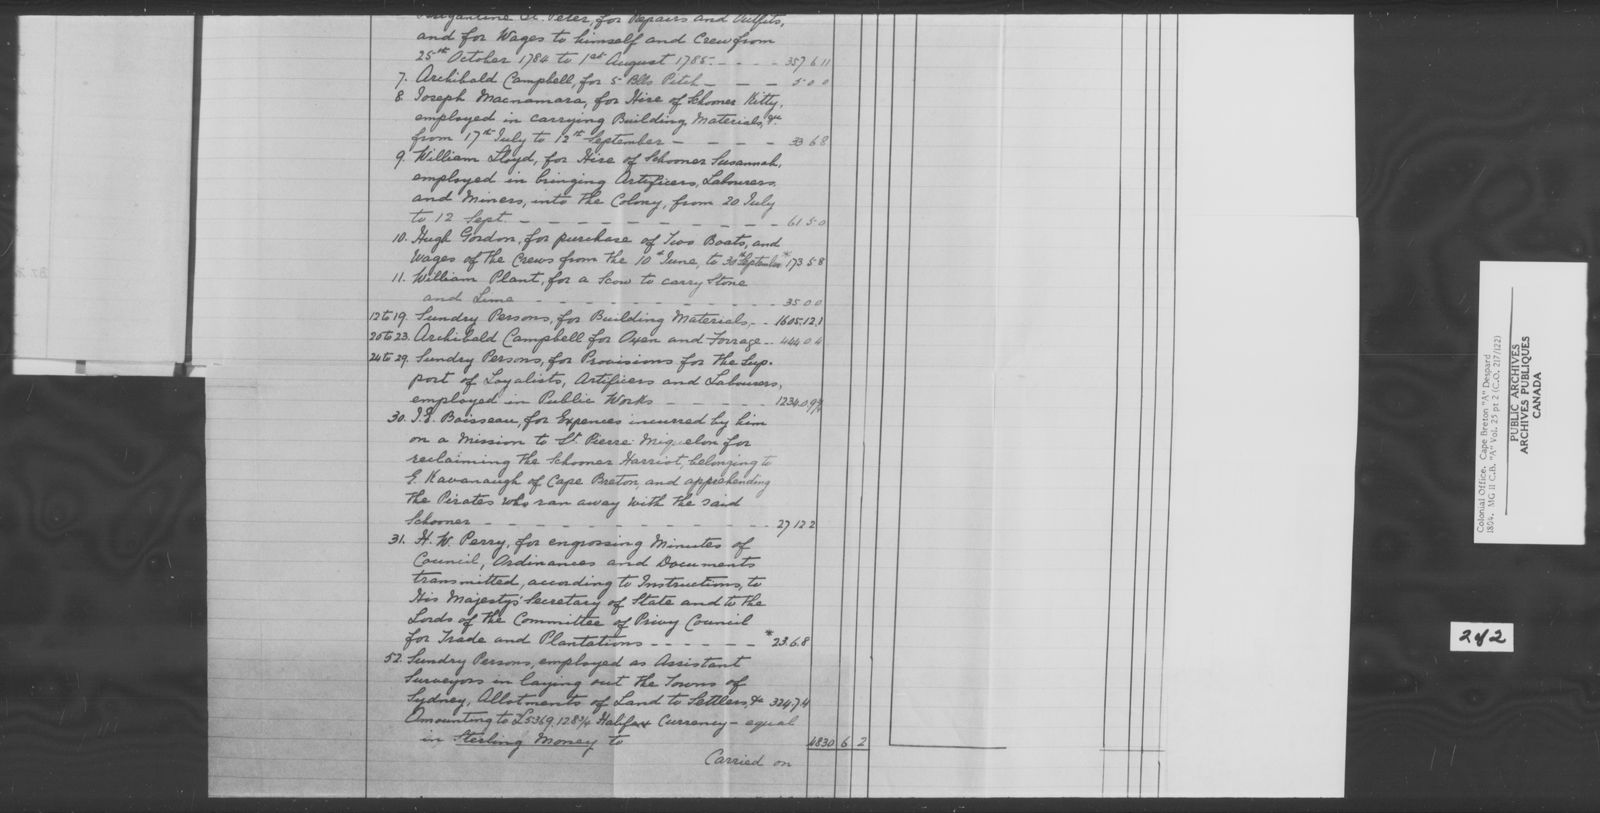 Brigantine St. Peter, for Repairs and Outfits,
and for Wages to himself and Crew from
25th October 1784 to 1st August 1785 - - - - 357 6 11
7. Archibald Campbell, for 5 Blls Pitch - - - 5 0 0
8. Joseph Macnamara, for Hire of Schooner Kitty,
employed in carrying Building Materials, &c
from 17th July to 12th September - - - - 33 6 8
9. William Lloyd, for Hire of Schooner Susannah,
employed in bringing Artificers, Labourers,
and Miners, into the Colony, from 20 July
to 12 Sept. - - - - - - - - - 61 5 0
10. Hugh Gordon, for purchase of Two Boats, and
Wages of the Crews from the 10th June, to 30th September * 173 5 8
11. William Plant, for a Scow to carry Stone
and Lime - - - - - - - - - 35 0 0
12 to 19. Sundry Persons, for Building Materials - - 1605.12.1
20 to 23. Archibald Campbell for Oxen and Forrage - - 444 0 4
24 to 29. Sundry Persons, for Provisions for the Sup-
port of Loyalists, Artificers and Labourers,
employed in Public Works - - - - - 1234.0.9¾
30. I. E. Boisseau, for Expences incurred by him
on a Mission to St. Pierre Miquelon for
reclaiming the Schooner Harriot, belonging to
L. Kavanaugh of Cape Breton, and apprehending
the Pirates who ran away with the said
Schooner - - - - - - - - - - - 27 12 2
31. H. W. Perry, for engrossing Minutes of
Council, Ordinances and Documents
transmitted, according to Instructions, to
His Majesty's Secretary of State and to the
Lords of the Committee of Privy Council
for Trade and Plantations - - - - - - * 23.6.8
52. Sundry Persons, employed as Assistant
Surveyors in laying out the Towns of
Sydney, Allotments of Land to Settlers, &c 324.7.4
Amounting to £5369.12.8¾ Halifax Currency - equal
in Sterling Money to 4830 6 2
Carried on
Colonial Office. Cape Breton "A" Despard
1804. MG II C.B. "A" Vol. 25 pt 2 (C.O. 217/122)
PUBLIC ARCHIVES
ARCHIVES PUBLIQUES
CANADA
2 of 2